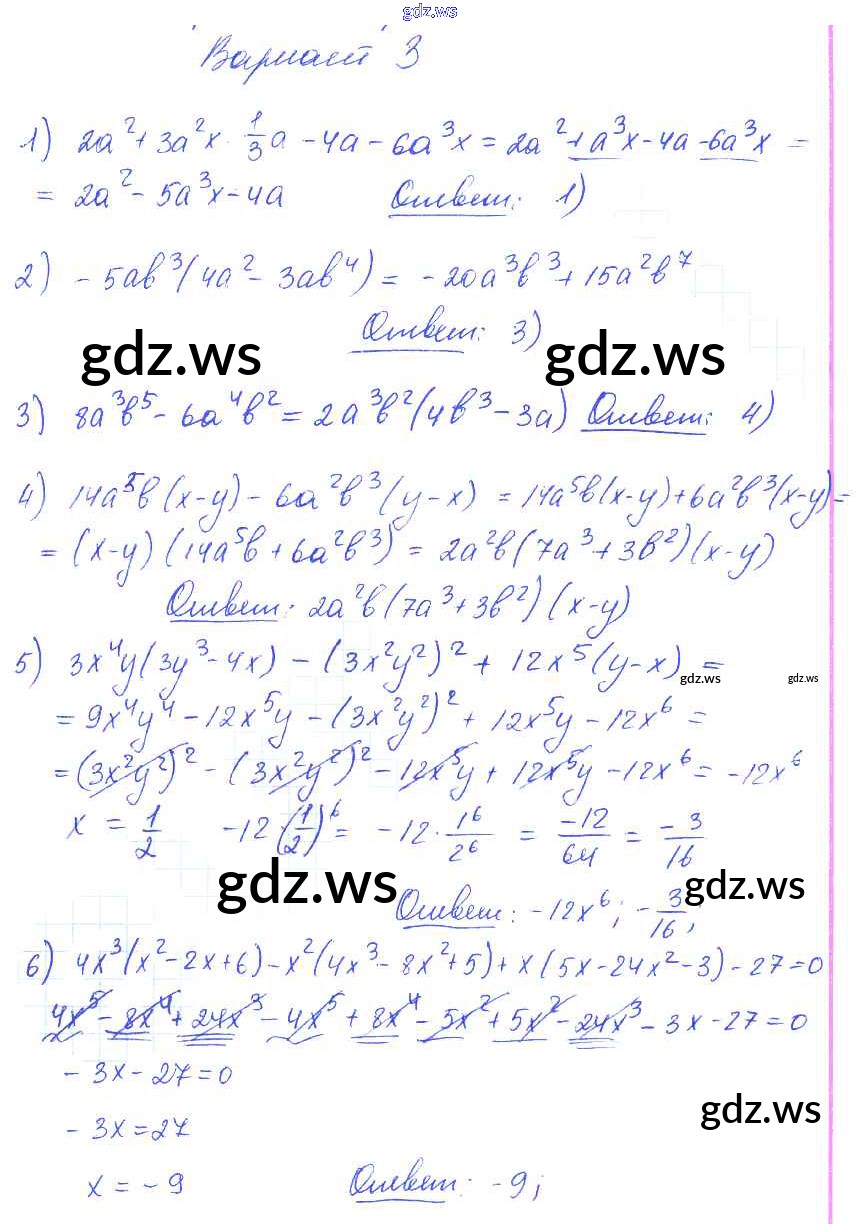 gdz.ws
Вариант 3
1) 2a² + 3a²x · 1/3 a - 4a - 6a³x = 2a² + a³x - 4a - 6a³x =
= 2a² - 5a³x - 4a Ответ: 1)
2) - 5ab³(4a² - 3ab⁴) = - 20a³b³ + 15a²b⁷
Ответ: 3)
gdz.ws gdz.ws
3) 8a³b⁵ - 6a⁴b² = 2a³b²(4b³ - 3a) Ответ: 4)
4) 14a⁵b(x-y) - 6a²b³(y-x) = 14a⁵b(x-y) + 6a²b³(x-y) =
= (x-y)(14a⁵b + 6a²b³) = 2a²b(7a³ + 3b²)(x-y)
Ответ: 2a²b(7a³ + 3b²)(x-y)
5) 3x⁴y(3y³ - 4x) - (3x²y²)² + 12x⁵(y-x) =
gdz.ws gdz.ws
= 9x⁴y⁴ - 12x⁵y - (3x²y²)² + 12x⁵y - 12x⁶ =
= (3x²y²)² - (3x²y²)² - 12x⁵y + 12x⁵y - 12x⁶ = - 12x⁶
x = 1/2 -12 · (1/2)⁶ = -12 · 1⁶/2⁶ = -12/64 = -3/16
gdz.ws gdz.ws
Ответ: -12x⁶; -3/16;
6) 4x³(x² - 2x + 6) - x²(4x³ - 8x² + 5) + x(5x - 24x² - 3) - 27 = 0
4x⁵ - 8x⁴ + 24x³ - 4x⁵ + 8x⁴ - 5x² + 5x² - 24x³ - 3x - 27 = 0
- 3x - 27 = 0
gdz.ws
- 3x = 27
x = - 9 Ответ: -9;